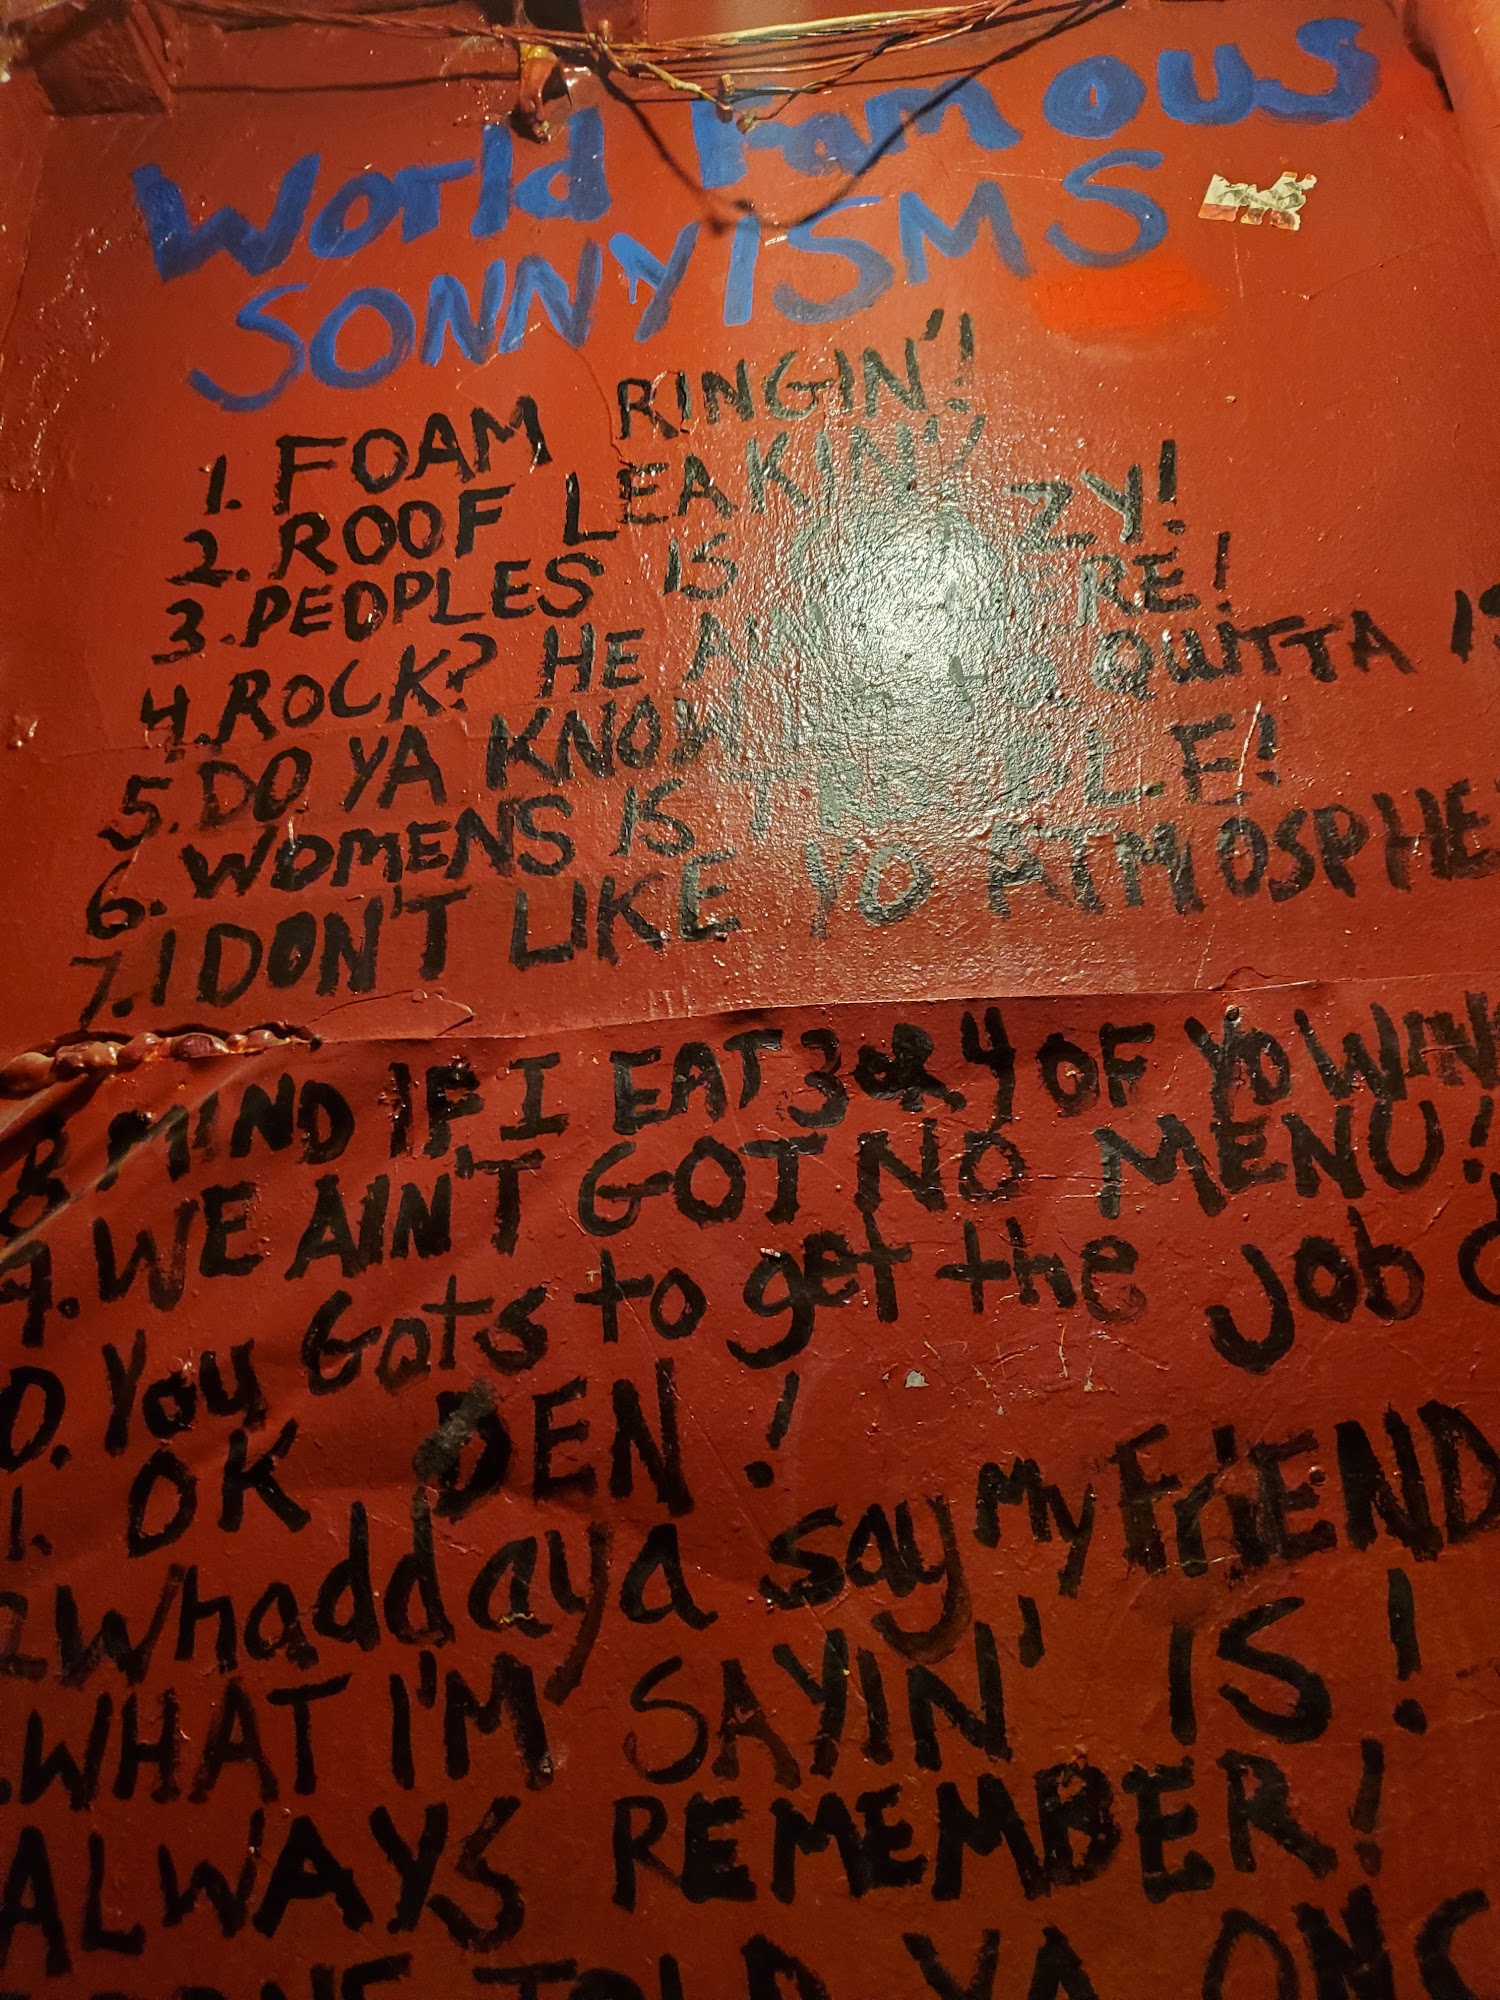 World Famous
SONNYISMS
1. FOAM RINGIN'!
2. ROOF LEAKIN'!
3. PEOPLES IS CRAZY!
4. ROCK? HE AIN'T HERE!
5. DO YA KNOW QWITTA
6. WOMENS IS TROUBLE!
7. I DON'T LIKE YO ATMOSPHE
8. MIND IF I EAT 3 OR 4 OF YO WIN
9. WE AIN'T GOT NO MENU!
0. You Gots to get the Job
1. OK DEN!
2 Whaddaya say my FRiEND
. WHAT I'M SAYIN' IS!
ALWAYS REMEMBER!
TOLD YA ONC